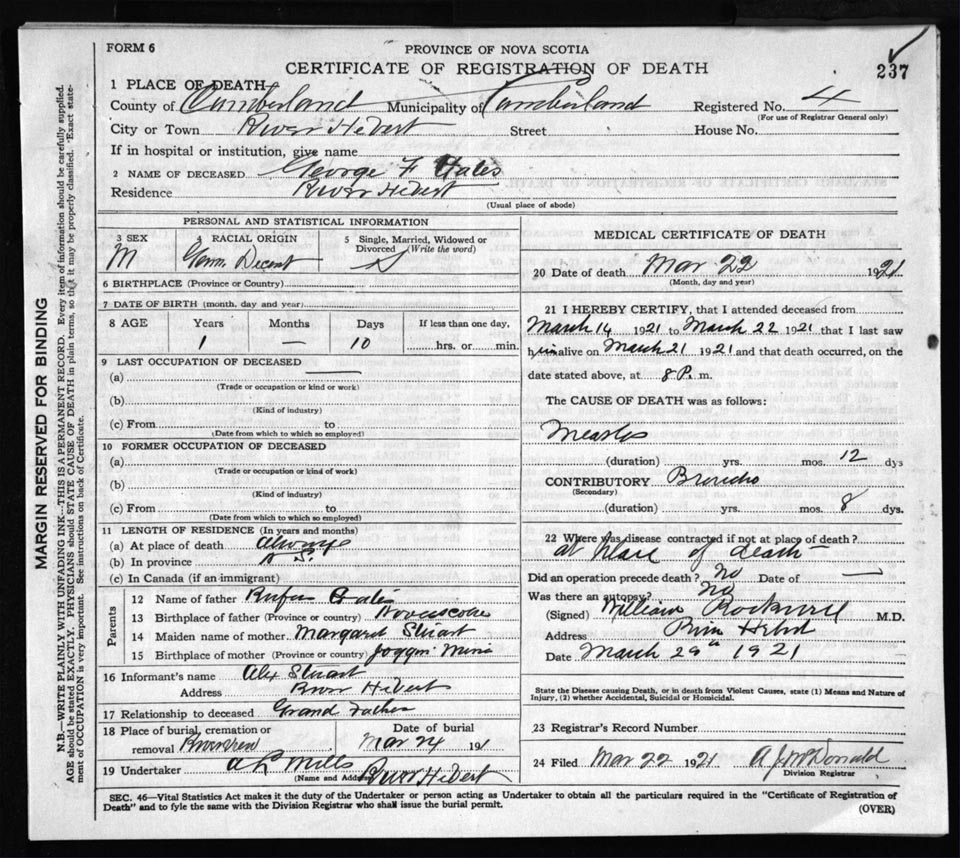 FORM 6
PROVINCE OF NOVA SCOTIA
237
CERTIFICATE OF REGISTRATION OF DEATH
1 PLACE OF DEATH
County of Cumberland Municipality of Cumberland Registered No. 4
(For use of Registrar General only)
City or Town River Hebert Street House No.
If in hospital or institution, give name
2 NAME OF DECEASED George F
Residence River Hebert
(Usual place of abode)
PERSONAL AND STATISTICAL INFORMATION
3 SEX M
4 RACIAL ORIGIN Germ. Decent
5 Single, Married, Widowed or Divorced (Write the word) S
6 BIRTHPLACE (Province or Country)
7 DATE OF BIRTH (month, day and year)
8 AGE Years Months Days If less than one day,
1 — 10 hrs. or min.
9 LAST OCCUPATION OF DECEASED
(a)
(Trade or occupation or kind or work)
(b)
(Kind of industry)
(c) From to
(Date from which to which so employed)
10 FORMER OCCUPATION OF DECEASED
(a)
(Trade or occupation or kind of work)
(b)
(Kind of industry)
(c) From to
(Date from which to which so employed)
11 LENGTH OF RESIDENCE (In years and months)
(a) At place of death always
(b) In province
(c) In Canada (if an immigrant)
Parents
12 Name of father Rufus
13 Birthplace of father (Province or country) Novascotia
14 Maiden name of mother Margaret Stuart
15 Birthplace of mother (Province or country) Joggin Mines
16 Informant's name Alex Stuart
Address River Hebert
17 Relationship to deceased Grand Father
18 Place of burial, cremation or Date of burial
removal Riverview Mar 24 191
19 Undertaker Mills
(Name and Address) River Hebert
MEDICAL CERTIFICATE OF DEATH
20 Date of death Mar 22 1921
(Month, day and year)
21 I HEREBY CERTIFY, that I attended deceased from
March 14 1921 to March 22 1921 that I last saw
him alive on March 21 1921 and that death occurred, on the
date stated above, at 8 P. m.
The CAUSE OF DEATH was as follows:
Measles
(duration) yrs. mos. 12 dys
CONTRIBUTORY
(Secondary)
(duration) yrs. mos. 8 dys.
22 Where was disease contracted if not at place of death?
at place of death
Did an operation precede death? no Date of —
Was there an autopsy? no
(Signed) William Rockwell M.D.
Address River Hebert
Date March 29th 1921
State the Disease causing Death, or in death from Violent Causes, state (1) Means and Nature of
Injury, (2) whether Accidental, Suicidal or Homicidal.
23 Registrar's Record Number
24 Filed Mar 22 1921 A J McDonald
Division Registrar
SEC. 46—Vital Statistics Act makes it the duty of the Undertaker or person acting as Undertaker to obtain all the particulars required in the "Certificate of Registration of
Death" and to fyle the same with the Division Registrar who shall issue the burial permit.
(OVER)
MARGIN RESERVED FOR BINDING
N.B.—WRITE PLAINLY WITH UNFADING INK—THIS IS A PERMANENT RECORD. Every item of information should be carefully supplied.
AGE should be stated EXACTLY. PHYSICIANS should STATE CAUSE OF DEATH in plain terms, so that it may be properly classified. "Exact state-
ment of OCCUPATION is very important. See instructions on back of Certificate.